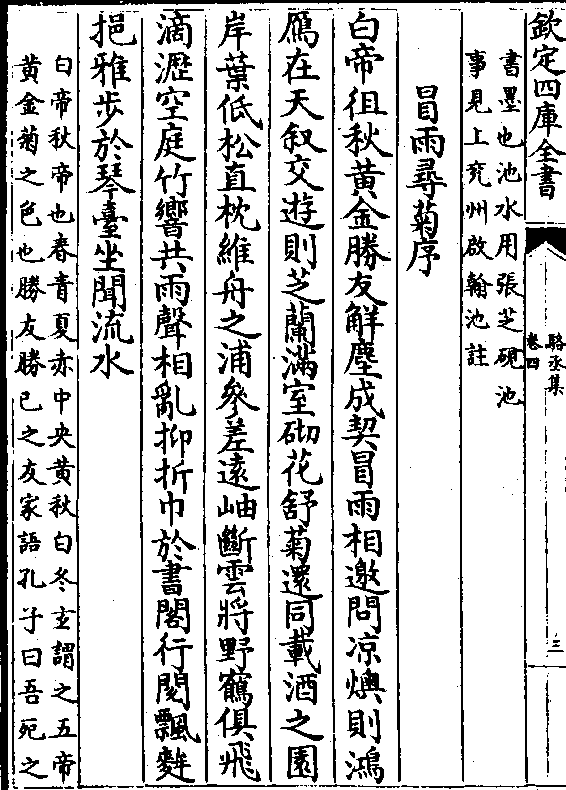 欽定四庫全書
駱丞集
卷四
三
書墨也池水用張芝硯池
事見上兖州啟翰池註
冒雨尋菊序
白帝徂秋黄金勝友觧塵成契冒雨相邀問凉燠則鴻
鴈在天叙交遊則芝蘭滿室砌花舒菊還同載酒之園
岸葉低松直枕維舟之浦參差逺岫斷雲將野鶴俱飛
滴瀝空庭竹響共雨聲相亂抑折巾於書閣行閱飄𪍿
挹雅步於琴臺坐聞流水
白帝秋帝也春青夏赤中央黄秋白冬玄謂之五帝
黄金菊之色也勝友勝己之友家語孔子曰吾死之